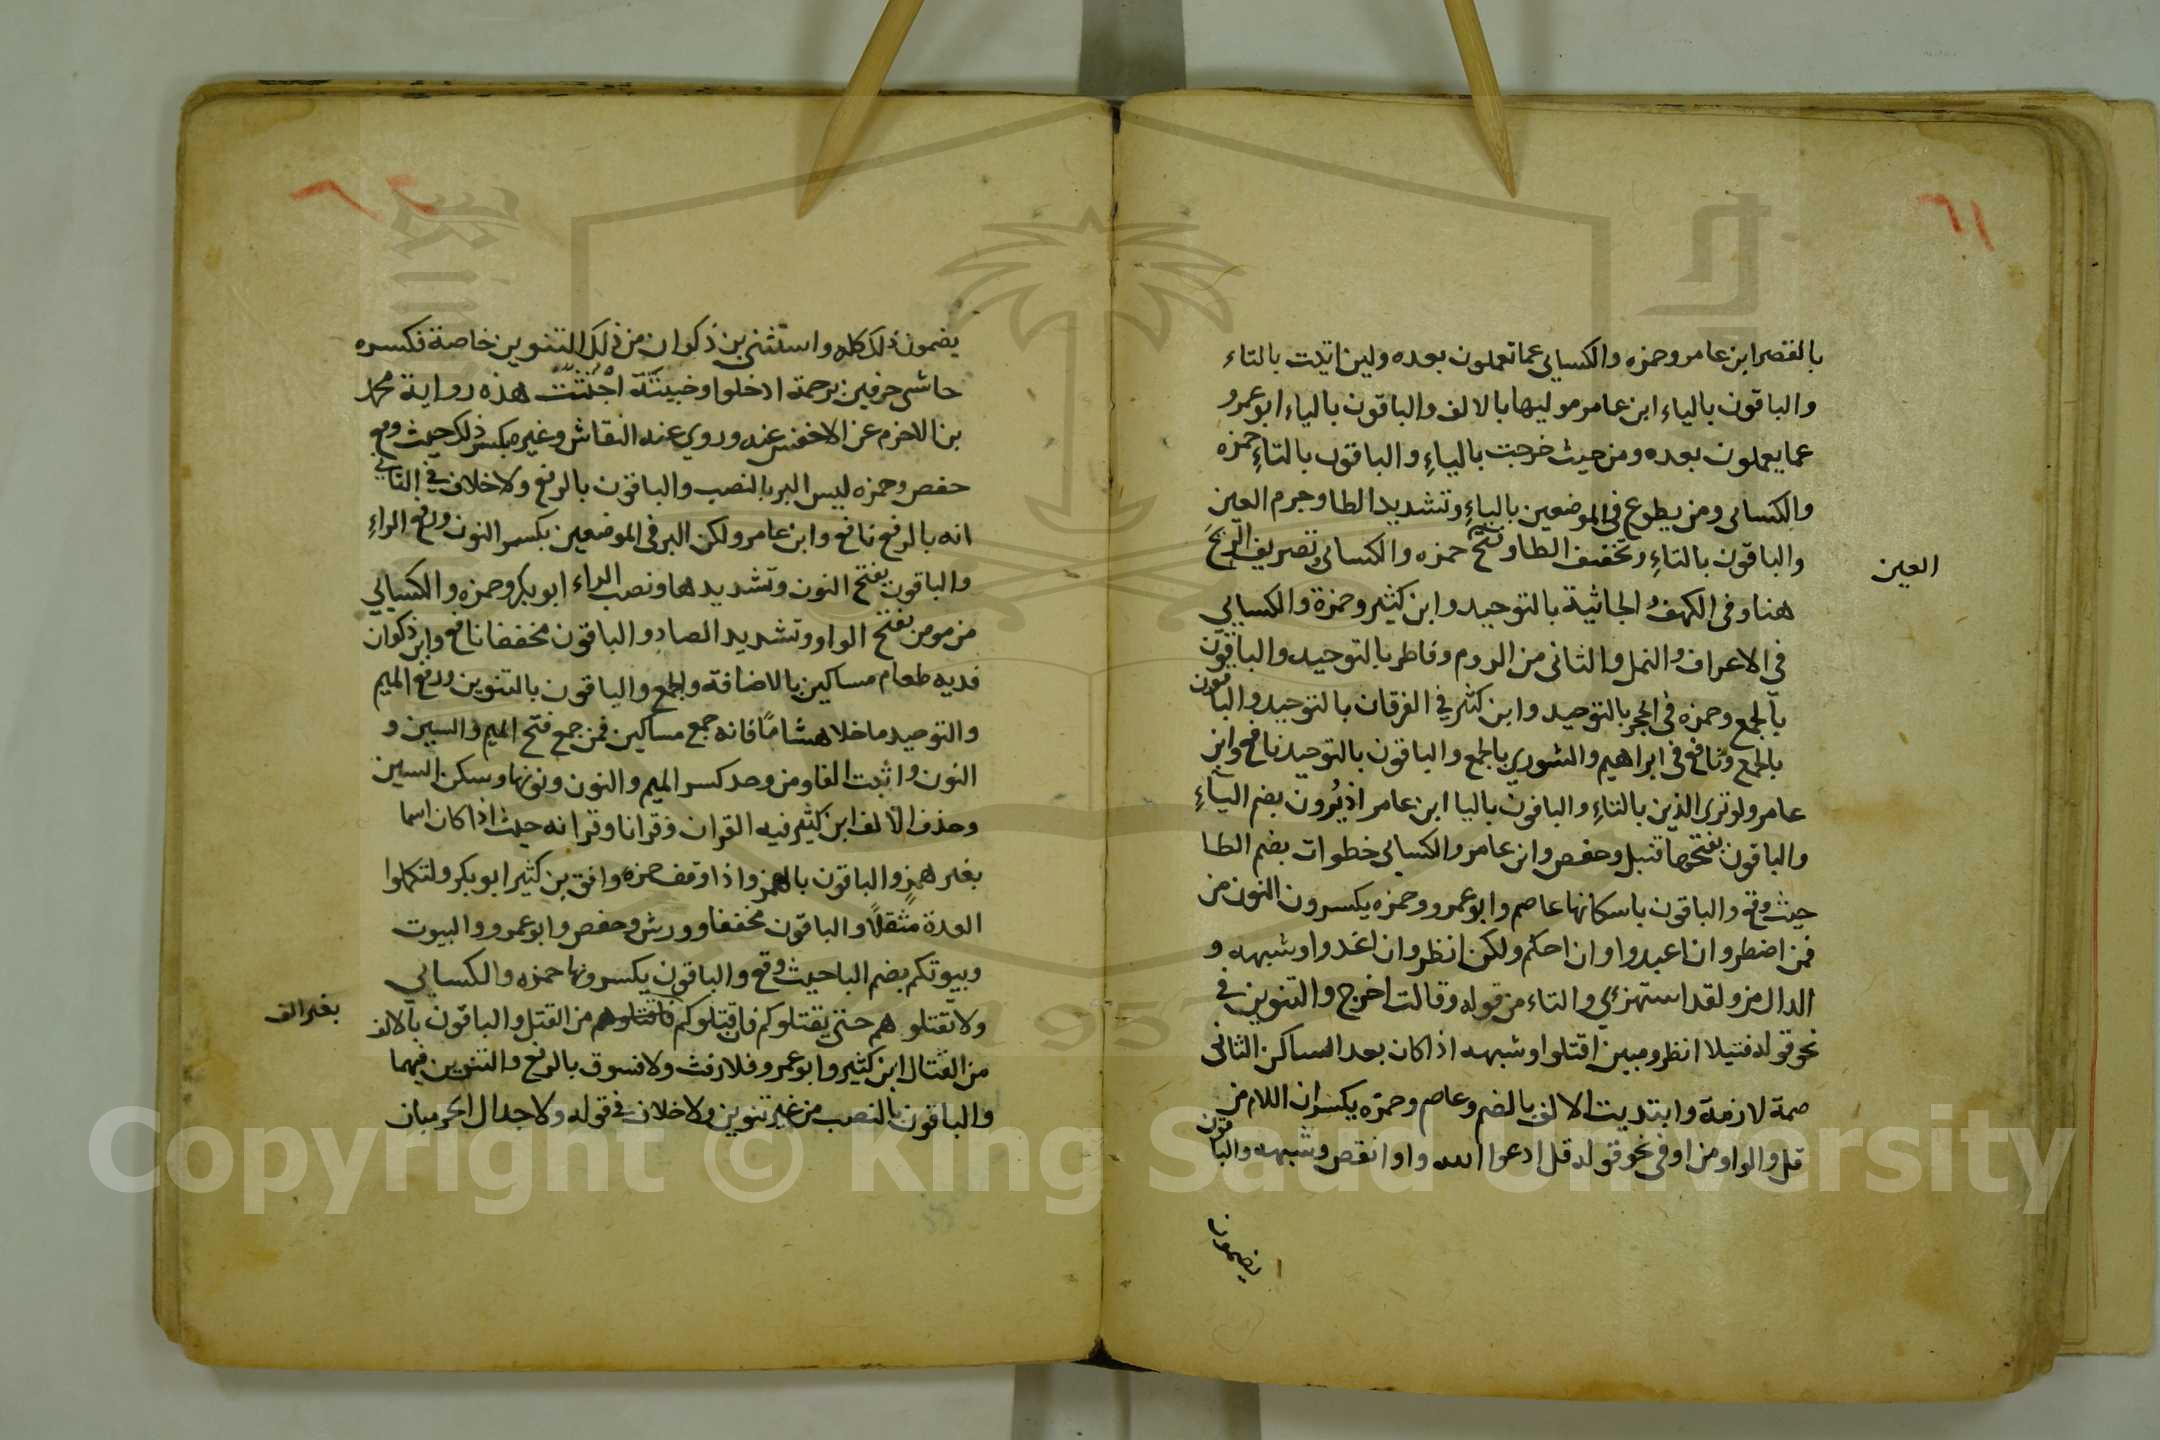 ٦١
بالقصر ابن عامر وحمزه والكسايى عما تعملون بعده ولين اتيت بالتاء
والباقون بالياء ابن عامر موليها بالالف والباقون بالياء ابو عمرو
عما يعملون بعده ومن حيث خرجت بالياءِ والباقون بالتاءِ حمزه
والكسائى ومن يطوع فى الموضعين بالياءِ وتشديد الطا وجرم العين
والباقون بالتاءِ وتخفيف الطا وفتح حمزه والكسائى وتصريف الريح
العين
هنا وفى الكهف والجاثية بالتوحيد وابن كثير وحمزة والكسايي
فى الاعراف والنمل والثانى من الروم وفاطر بالتوحيد والباقون
بالجمع وحمزه فى الحجر بالتوحيد وابن كثير في الفرقان بالتوحيد والباقون
بالجمع ونافع فى ابراهيم والشوري بالجمع والباقون بالتوحيد نافع وابن
عامر ولو ترى الذين بالتاءِ والباقون باليا ابن عامر اذ يُرون بضم الياءِ
والباقون بفتحها قنبل وحفص وابن عامر والكسائى خطوات بضم الطا
حيث وقع والباقون باسكانها عاصم وابو عمرو وحمزه يكسرون النون من
فمن اضطر وان اعبدوا وان احكم ولكن انظر وان اغدوا وشبهه و
الدال من ولقد استهزئي والتاء من قوله وقالت اخرج والتنوين في
نحو قوله فتيلا انظر ومبين اقتلوا وشبهه اذا كان بعد الساكن الثانى
ضمة لازمة وابتديت الالف بالضم وعاصم وحمزه يكسران اللام من
قل والواو من او فى نحو قوله قل ادعوا الله واو انقص وشبهه والباقون
يضمون
يضمون ذلك كله واستثنى بن ذكوان من ذلك التنوين خاصة فكسره
حاشى حرفين برحمة ادخلوا وخبيثة اجْتُثّت هذه رواية محمد
بن الاخرم عن الاخفش عنه وروي عنه النقاش وغيره بكسر ذلك حيث وقع
حفص وحمزه ليس البر بالنصب والباقون بالرفع ولا خلاف في الثاني
انه بالرفع نافع وابن عامر ولكن البر فى الموضعين بكسر النون ورفع الراءِ
والباقون بفتح النون وتشديدها ونصب الراء ابو بكر وحمزه والكسيائي
من موص بفتح الواو وتشديد الصاد والباقون مخففا نافع وابن ذكوان
فديه طعام مساكين بالاضافة والجمع والباقون بالتنوين ورفع الميم
والتوحيد ما خلا هشامًا فانه جمع مساكين فمن جمع فتح الميم والسين و
النون واثبت الفا ومن وحد كسر الميم والنون ونونها وسكن السين
وحذف الالف ابن كثير فيه القران وقرانا وقرانه حيث اذا كان اسما
بغير همزٍ والباقون بالهمز واذا وقف حمزه وافق بن كثير ابو بكر ولتكملوا
العدة مثقلاً والباقون مخففا وورش وحفص وابو عمرو والبيوت
وبيوتكم بضم البا حيث وقع والباقون يكسرونها حمزه والكسايي
ولا تقتلوهم حتى يقتلوكم فان قتلوكم من القتل والباقون بالالف
بغير الف
من القتال ابن كثير وابو عمرو فلا رفث ولا فسوق بالرفع والتنوين فيهما
والباقون بالنصب من غير تنوين ولا خلاف في قوله ولا جدال الحرميان
Copyright © King Saud University
1957